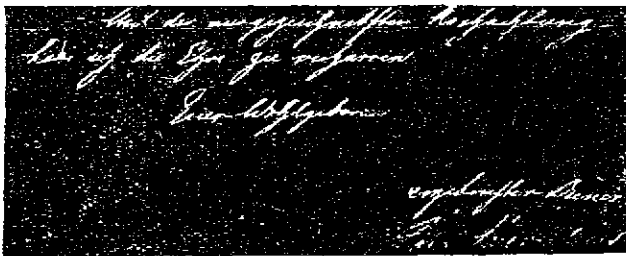 Mit der ausgezeichnetsten Hochachtung
habe ich die Ehre zu verharren
Euer Wohlgeboren
ergebenster Diener